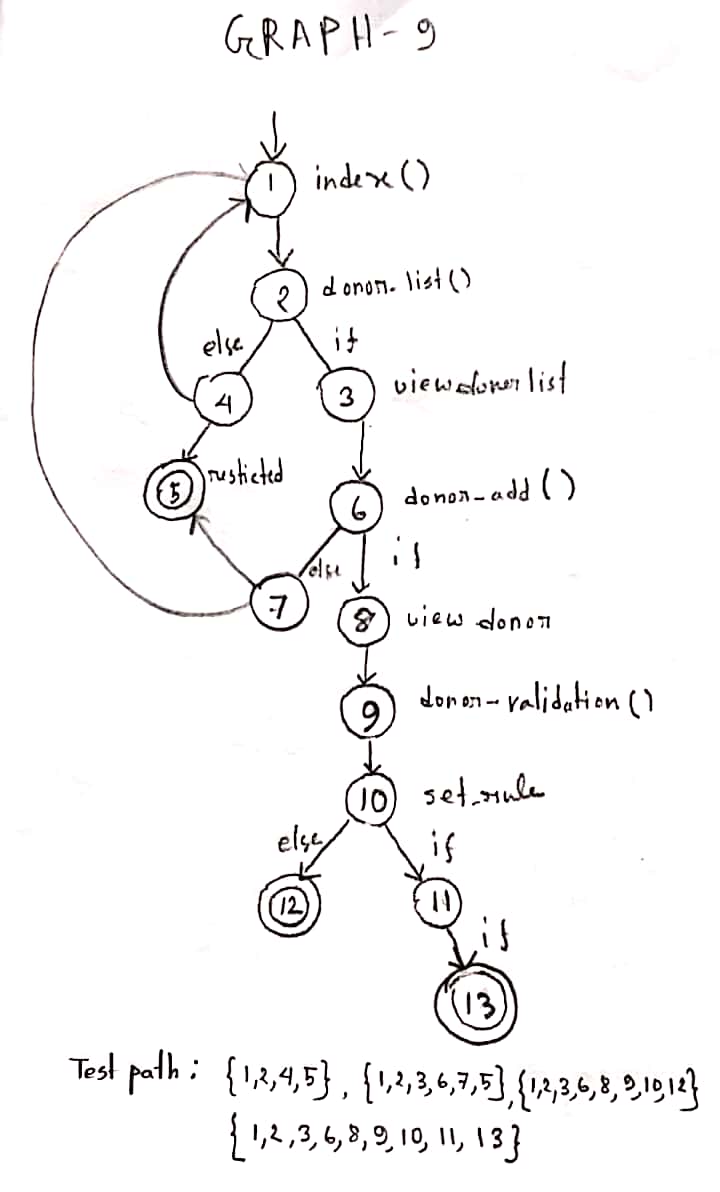 GRAPH-9
1 index()
2 donor_list()
else if
4 3 view donor list
5 rusticted
6 donor_add()
else if
7 8 view donor
9 donor_validation()
10 set_rule
else if
12 11
if
13
Test path: {1,2,4,5}, {1,2,3,6,7,5}, {1,2,3,6,8,9,10,12}
{1,2,3,6,8,9,10,11,13}